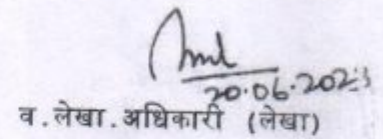 20.06.2023
व.लेखा.अधिकारी (लेखा)